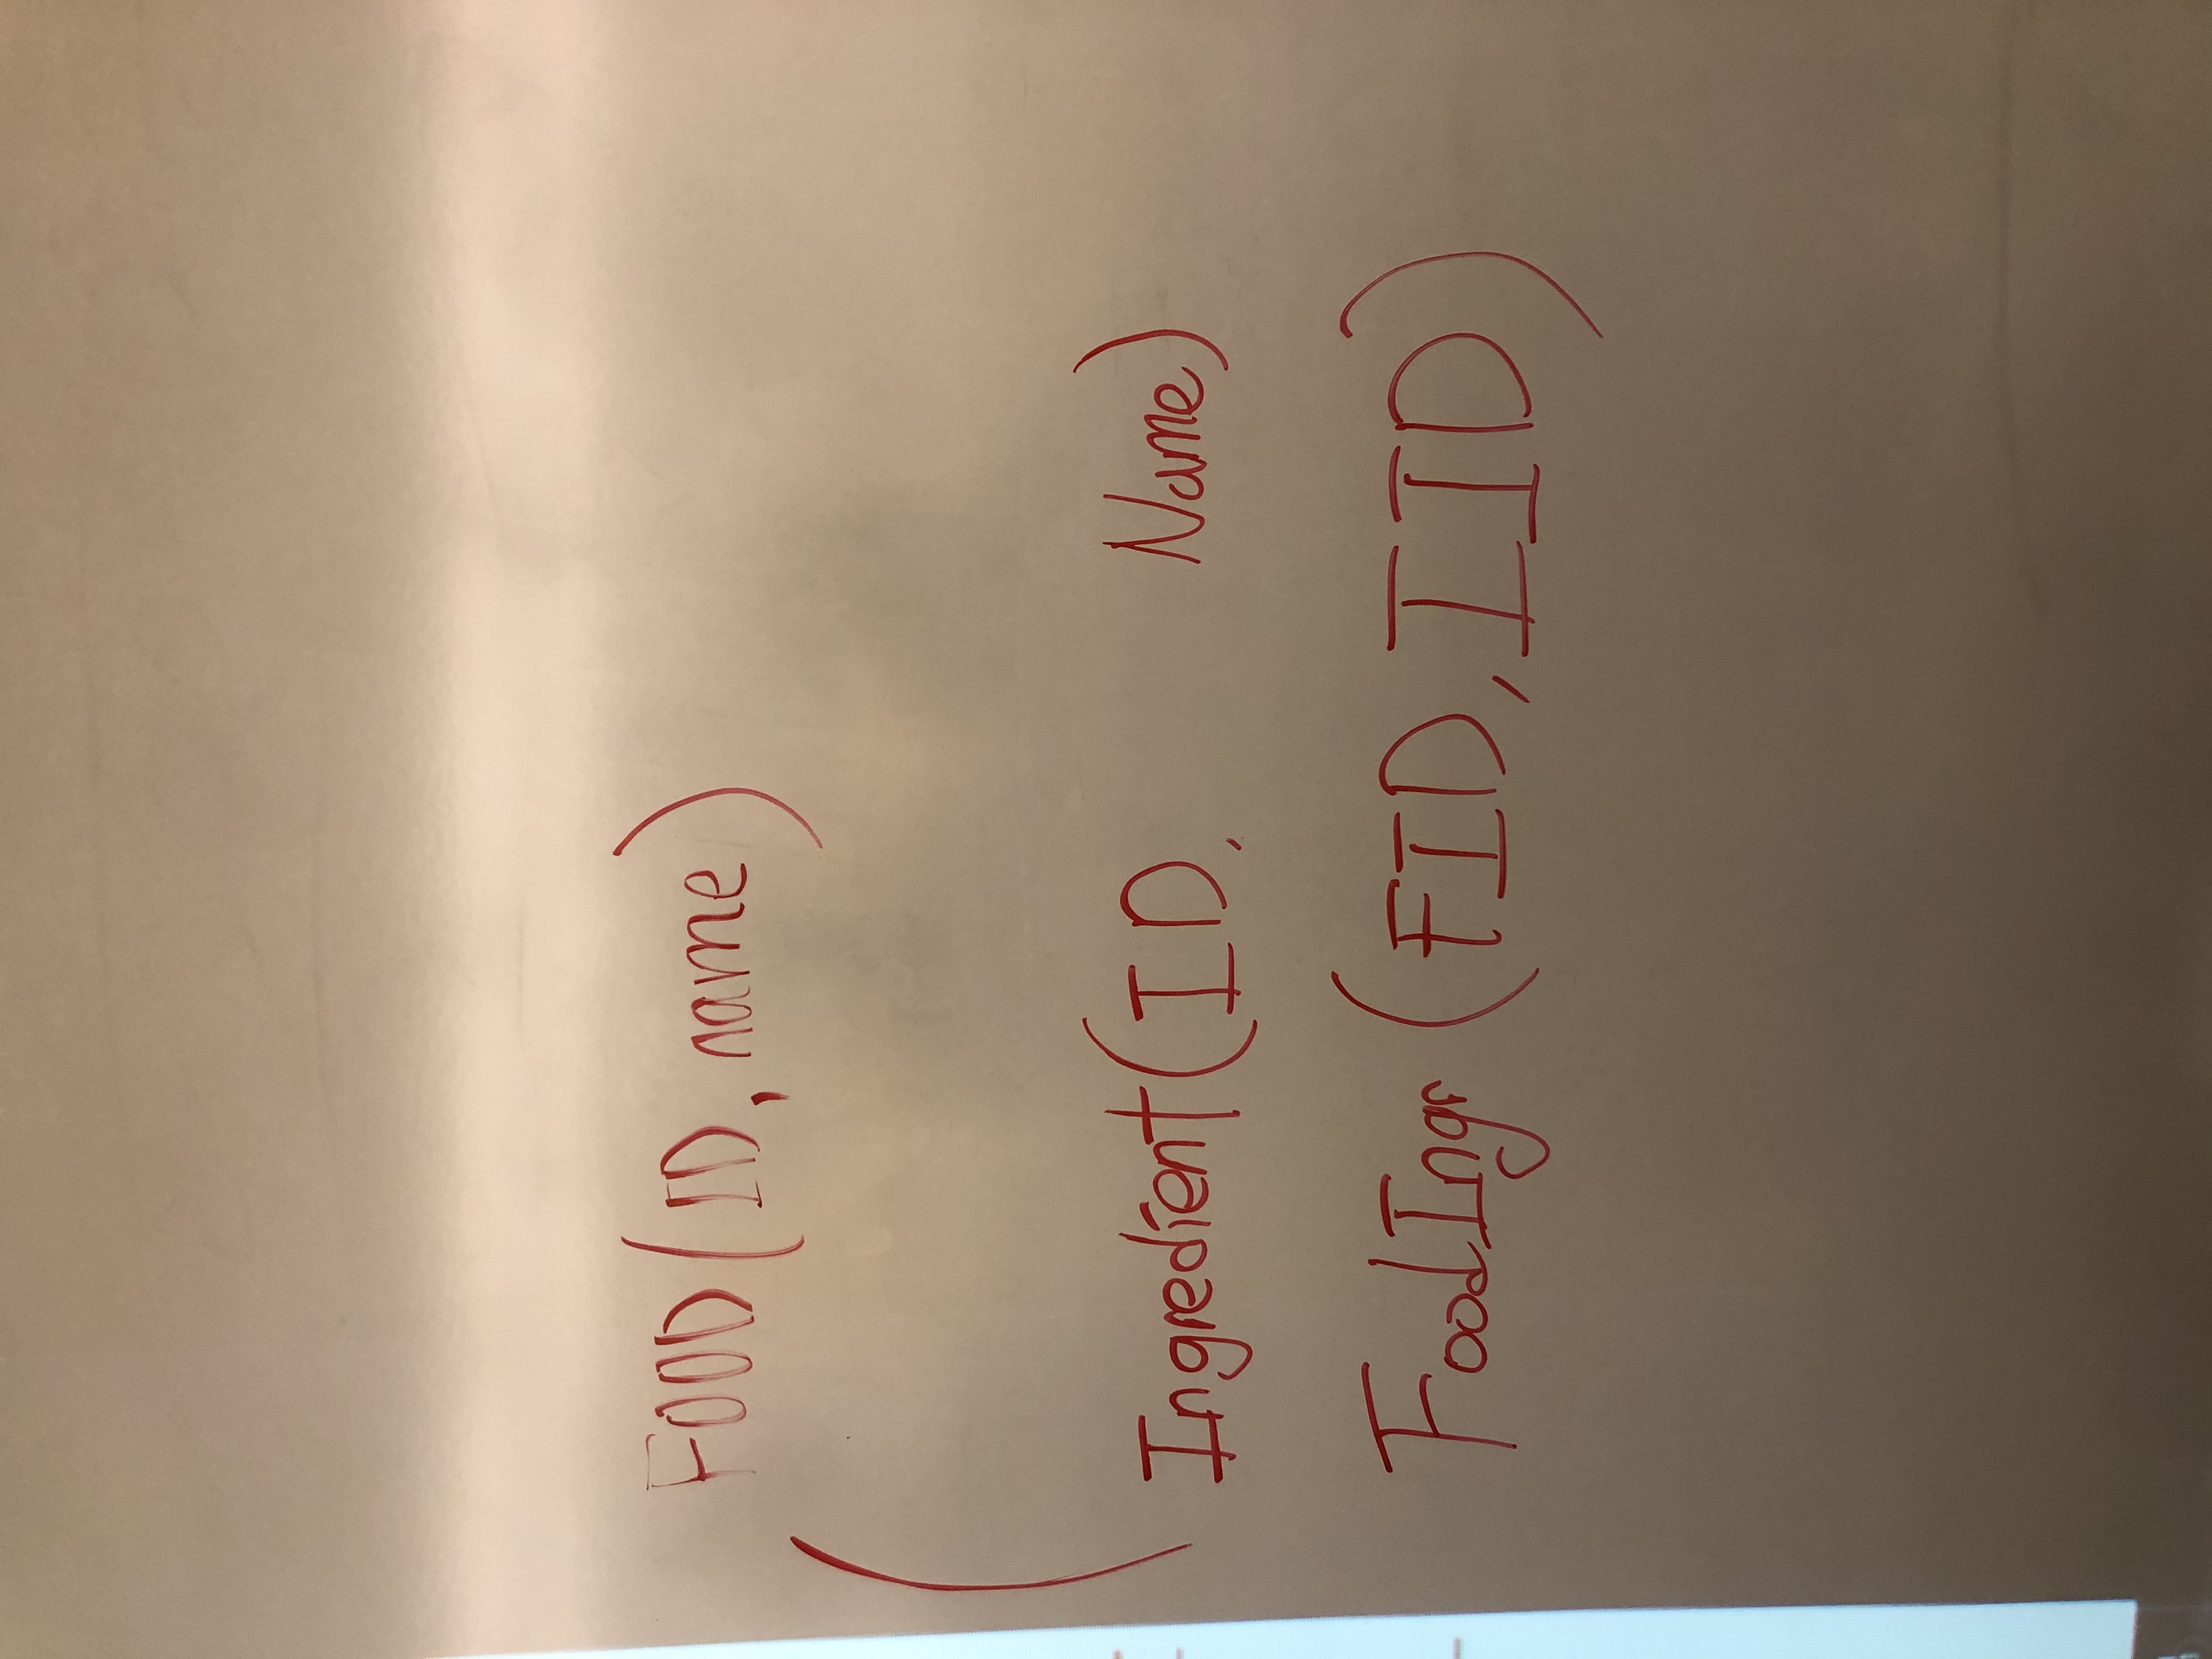 FOOD(ID, name)
Ingredient(ID, Name)
FoodIngr(FID, IID)